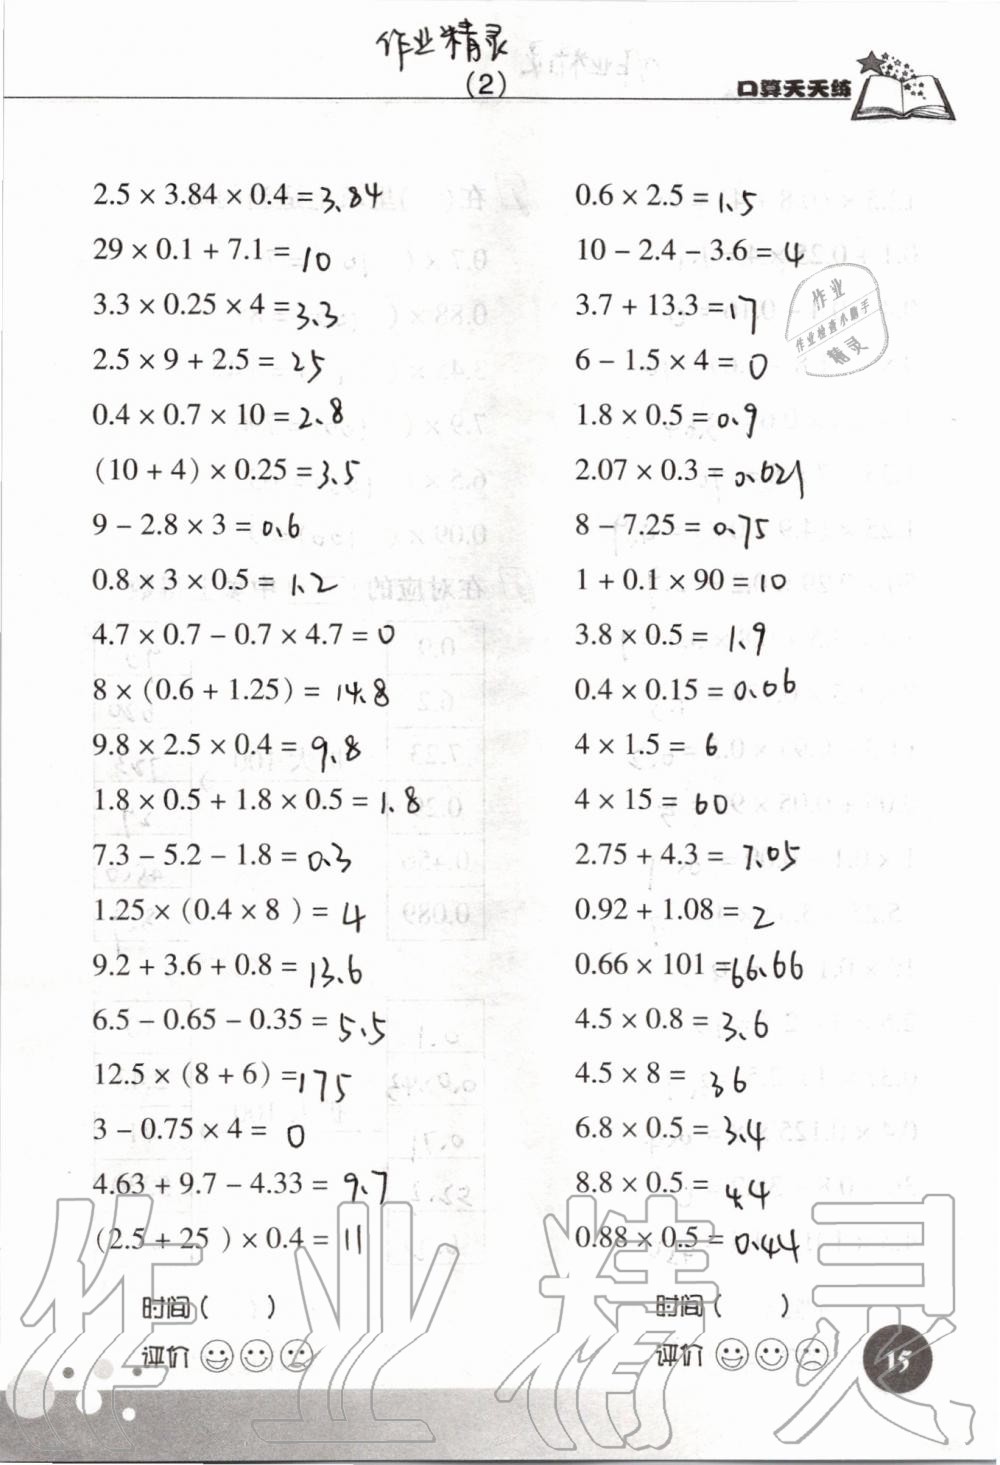 作业精灵
(2)
口算天天练
2.5 × 3.84 × 0.4 = 3.84
29 × 0.1 + 7.1 = 10
3.3 × 0.25 × 4 = 3.3
2.5 × 9 + 2.5 = 25
0.4 × 0.7 × 10 = 2.8
(10 + 4) × 0.25 = 3.5
9 - 2.8 × 3 = 0.6
0.8 × 3 × 0.5 = 1.2
4.7 × 0.7 - 0.7 × 4.7 = 0
8 × (0.6 + 1.25) = 14.8
9.8 × 2.5 × 0.4 = 9.8
1.8 × 0.5 + 1.8 × 0.5 = 1.8
7.3 - 5.2 - 1.8 = 0.3
1.25 × (0.4 × 8) = 4
9.2 + 3.6 + 0.8 = 13.6
6.5 - 0.65 - 0.35 = 5.5
12.5 × (8 + 6) = 175
3 - 0.75 × 4 = 0
4.63 + 9.7 - 4.33 = 9.7
(2.5 + 25) × 0.4 = 11
时间( )
评价
0.6 × 2.5 = 1.5
10 - 2.4 - 3.6 = 4
3.7 + 13.3 = 17
6 - 1.5 × 4 = 0
1.8 × 0.5 = 0.9
2.07 × 0.3 = 0.621
8 - 7.25 = 0.75
1 + 0.1 × 90 = 10
3.8 × 0.5 = 1.9
0.4 × 0.15 = 0.06
4 × 1.5 = 6
4 × 15 = 60
2.75 + 4.3 = 7.05
0.92 + 1.08 = 2
0.66 × 101 = 66.66
4.5 × 0.8 = 3.6
4.5 × 8 = 36
6.8 × 0.5 = 3.4
8.8 × 0.5 = 4.4
0.88 × 0.5 = 0.44
时间( )
评价
15
作业
作业检查小助手
精灵
作业精灵